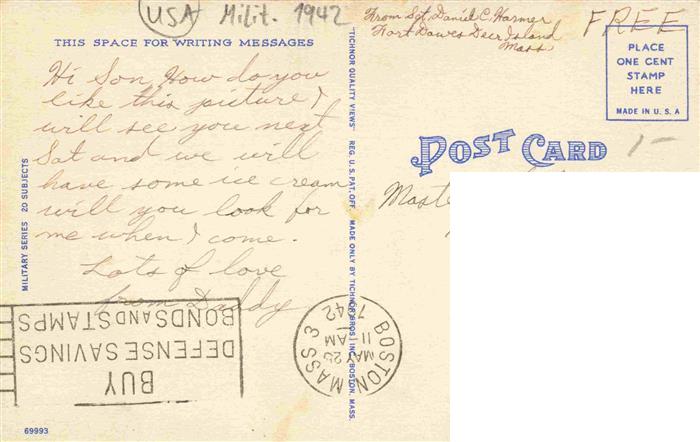 USA Milit. 1942
THIS SPACE FOR WRITING MESSAGES
Hi Son, How do you
like this picture I
will see you next
Sat and we will
have some ice cream
will you look for
me when I come.
Lots of love
from Daddy
MILITARY SERIES 20 SUBJECTS
69993
"TICHNOR QUALITY VIEWS" REG. U.S. PAT. OFF. MADE ONLY BY TICHNOR BROS. INC. BOSTON, MASS.
From Sgt. Daniel C. Harmer
Fort Dawes Deer Island
Mass
FREE
PLACE
ONE CENT
STAMP
HERE
MADE IN U.S.A
POST CARD
1-
Maste
BUY
DEFENSE SAVINGS
BONDS AND STAMPS
BOSTON MASS 3
MAY 25
11 AM
1942